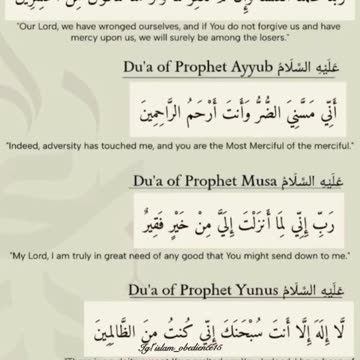 "Our Lord, we have wronged ourselves, and if You do not forgive us and have
mercy upon us, we will surely be among the losers."
Du'a of Prophet Ayyub عَلَيْهِ السَّلَامُ
أَنِّي مَسَّنِيَ الضُّرُّ وَأَنتَ أَرْحَمُ الرَّاحِمِينَ
"Indeed, adversity has touched me, and you are the Most Merciful of the merciful."
Du'a of Prophet Musa عَلَيْهِ السَّلَامُ
رَبِّ إِنِّي لِمَا أَنزَلْتَ إِلَيَّ مِنْ خَيْرٍ فَقِيرٌ
"My Lord, I am truly in great need of any good that You might send down to me."
Du'a of Prophet Yunus عَلَيْهِ السَّلَامُ
لَّا إِلَهَ إِلَّا أَنتَ سُبْحَنَكَ إِنِّي كُنتُ مِنَ الظَّالِمِينَ